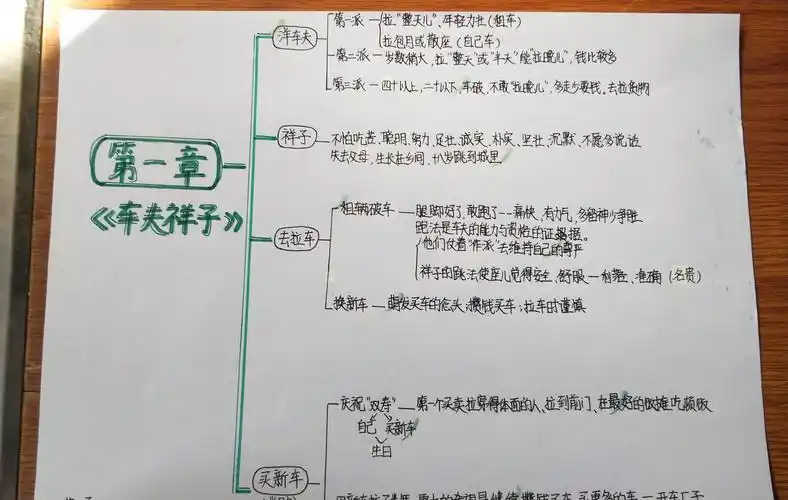 第一章
《车夫祥子》
洋车夫
第一派 — 拉"整天儿"，年轻力壮（租车）
拉包月或散座（自己车）
第二派 — 岁数稍大，拉"整天"或"半天"能"拉晚儿"，钱比较多
第三派 — 四十以上，二十以下，车破，不敢"拉晚儿"，多走少要钱。去拉货物
祥子
不怕吃苦、聪明、努力、健壮、诚实、朴实、坚壮、沉默、不愿多说话
失去父母，生长在乡间，十八岁跑到城里
去拉车
租辆破车 — 腿脚好了，敢跑了--痛快，有力气，多留神少争胜
跑法是车夫的能力与资格的证据。
他们仗着"作派"去维持自己的尊严
祥子的跑法使座儿觉得安全、舒服 — 利落、准确（名贵）
换新车 — 萌发买车的念头；攒钱买车；拉车时谨慎
买新车
庆祝"双寿" — 第一个买卖拉穿得体面的人、拉到前门、在最好的饭摊吃顿饭
自己 买新车
生日